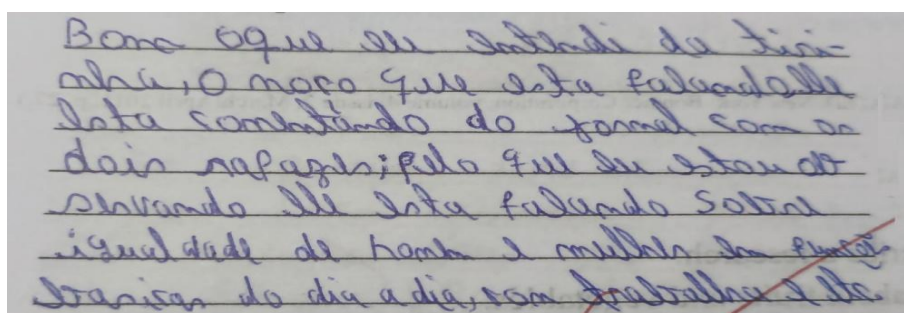 Bom oque eu entendi da tiri-
nha, O moço que esta falando, ele
esta comentando do jornal com os
dois rapazes; pelo que eu estou ob
servando ele esta falando sobre
igualdade de homem e mulher em
do dia a dia, com trabalho e etc.